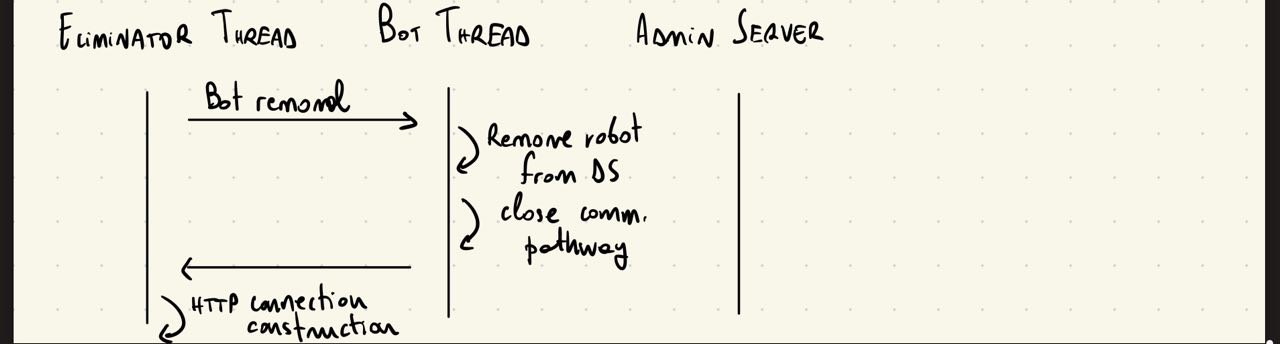 ELIMINATOR THREAD BOT THREAD ADMIN SERVER
Bot removal
Remove robot
from DS
close comm.
pathway
HTTP connection
construction